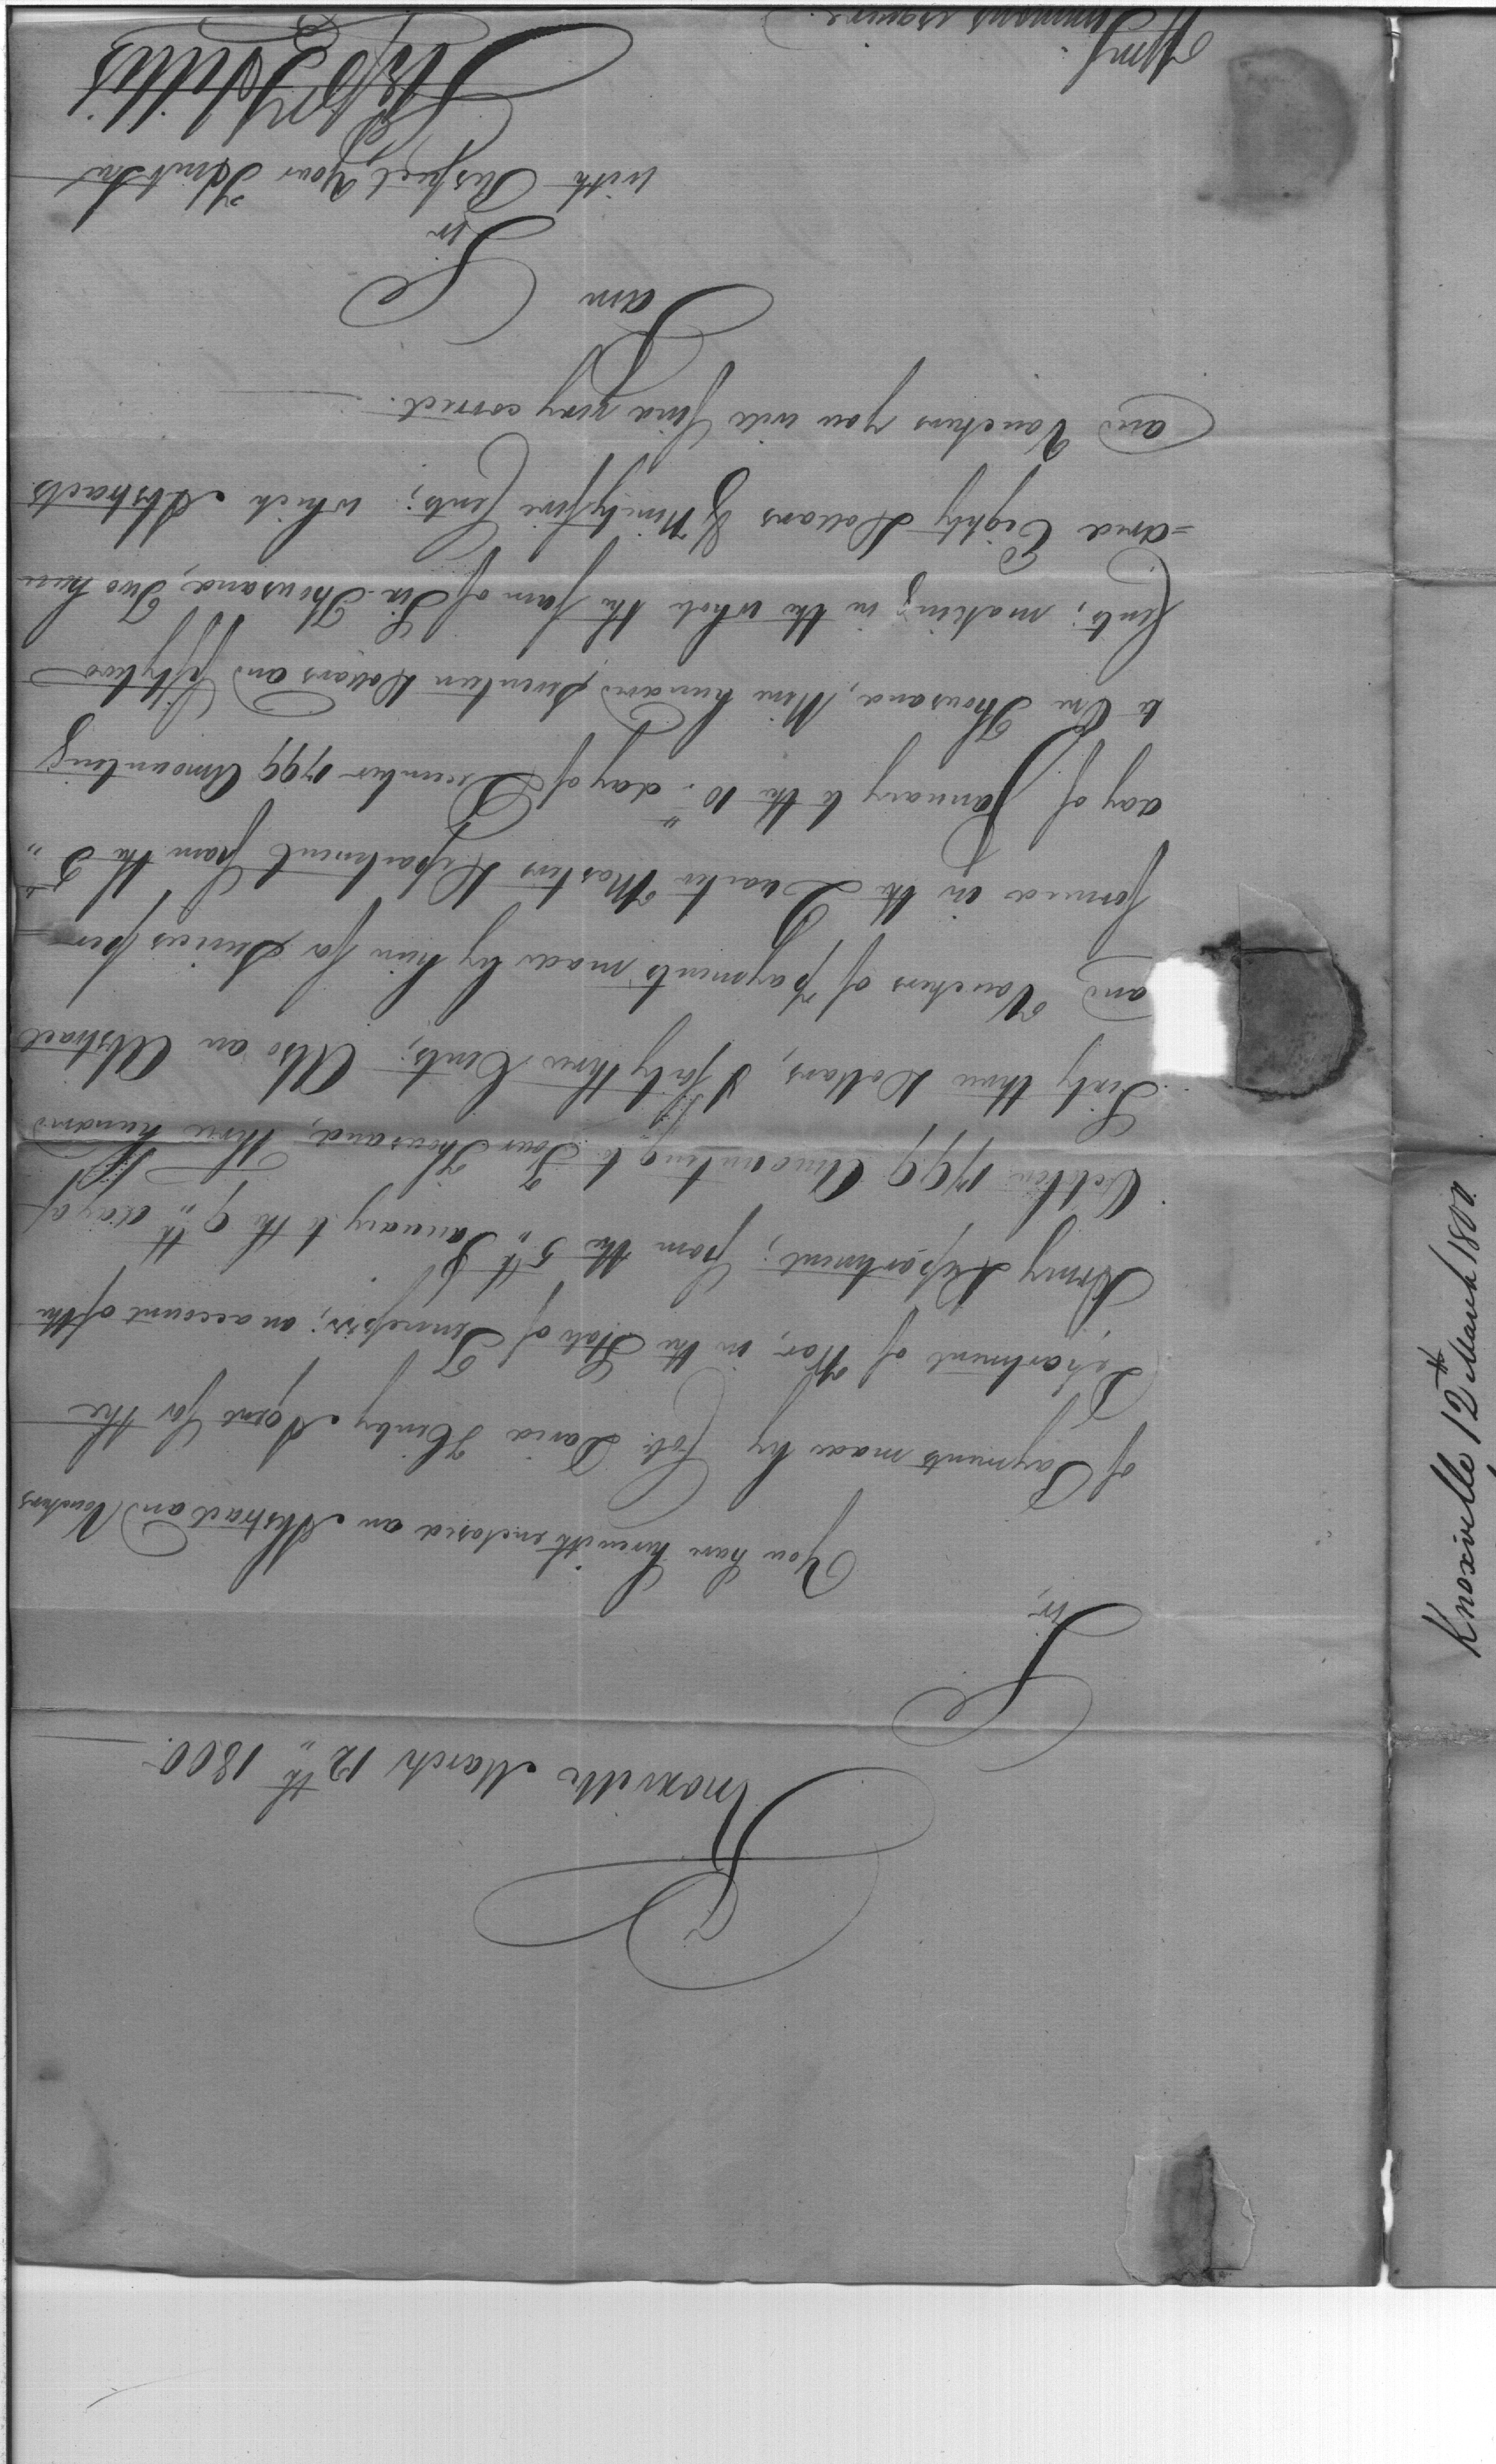 Knoxville March 12th 1800.
Sir,
You have herewith enclosed an Abstract and Vouchers
of Payments made by Col. David Henley Agent for the
Department of War, in the State of Tennessee; on account of the
Army Department; from the 5th January to the 9th day of
October 1799 Amounting to Four Thousand, three hundred
Sixty three Dollars, & forty three Cents; Also an Abstract
and Vouchers of payments made by him for Services per-
formed in the Quarter Masters Department from the 5"
day of January to the 10" day of December 1799 Amounting
to One Thousand, Nine hundred, Seventeen Dollars and fifty two
Cents; making in the whole the sum of Six Thousand, Two hun
=dred Eighty Dollars & Ninety five Cents; which Abstracts
and Vouchers you will find very correct.
I am
Sir
with Respect, Your Hmbl St
Willis
Simmons esquire
Knoxville 12th March 1800